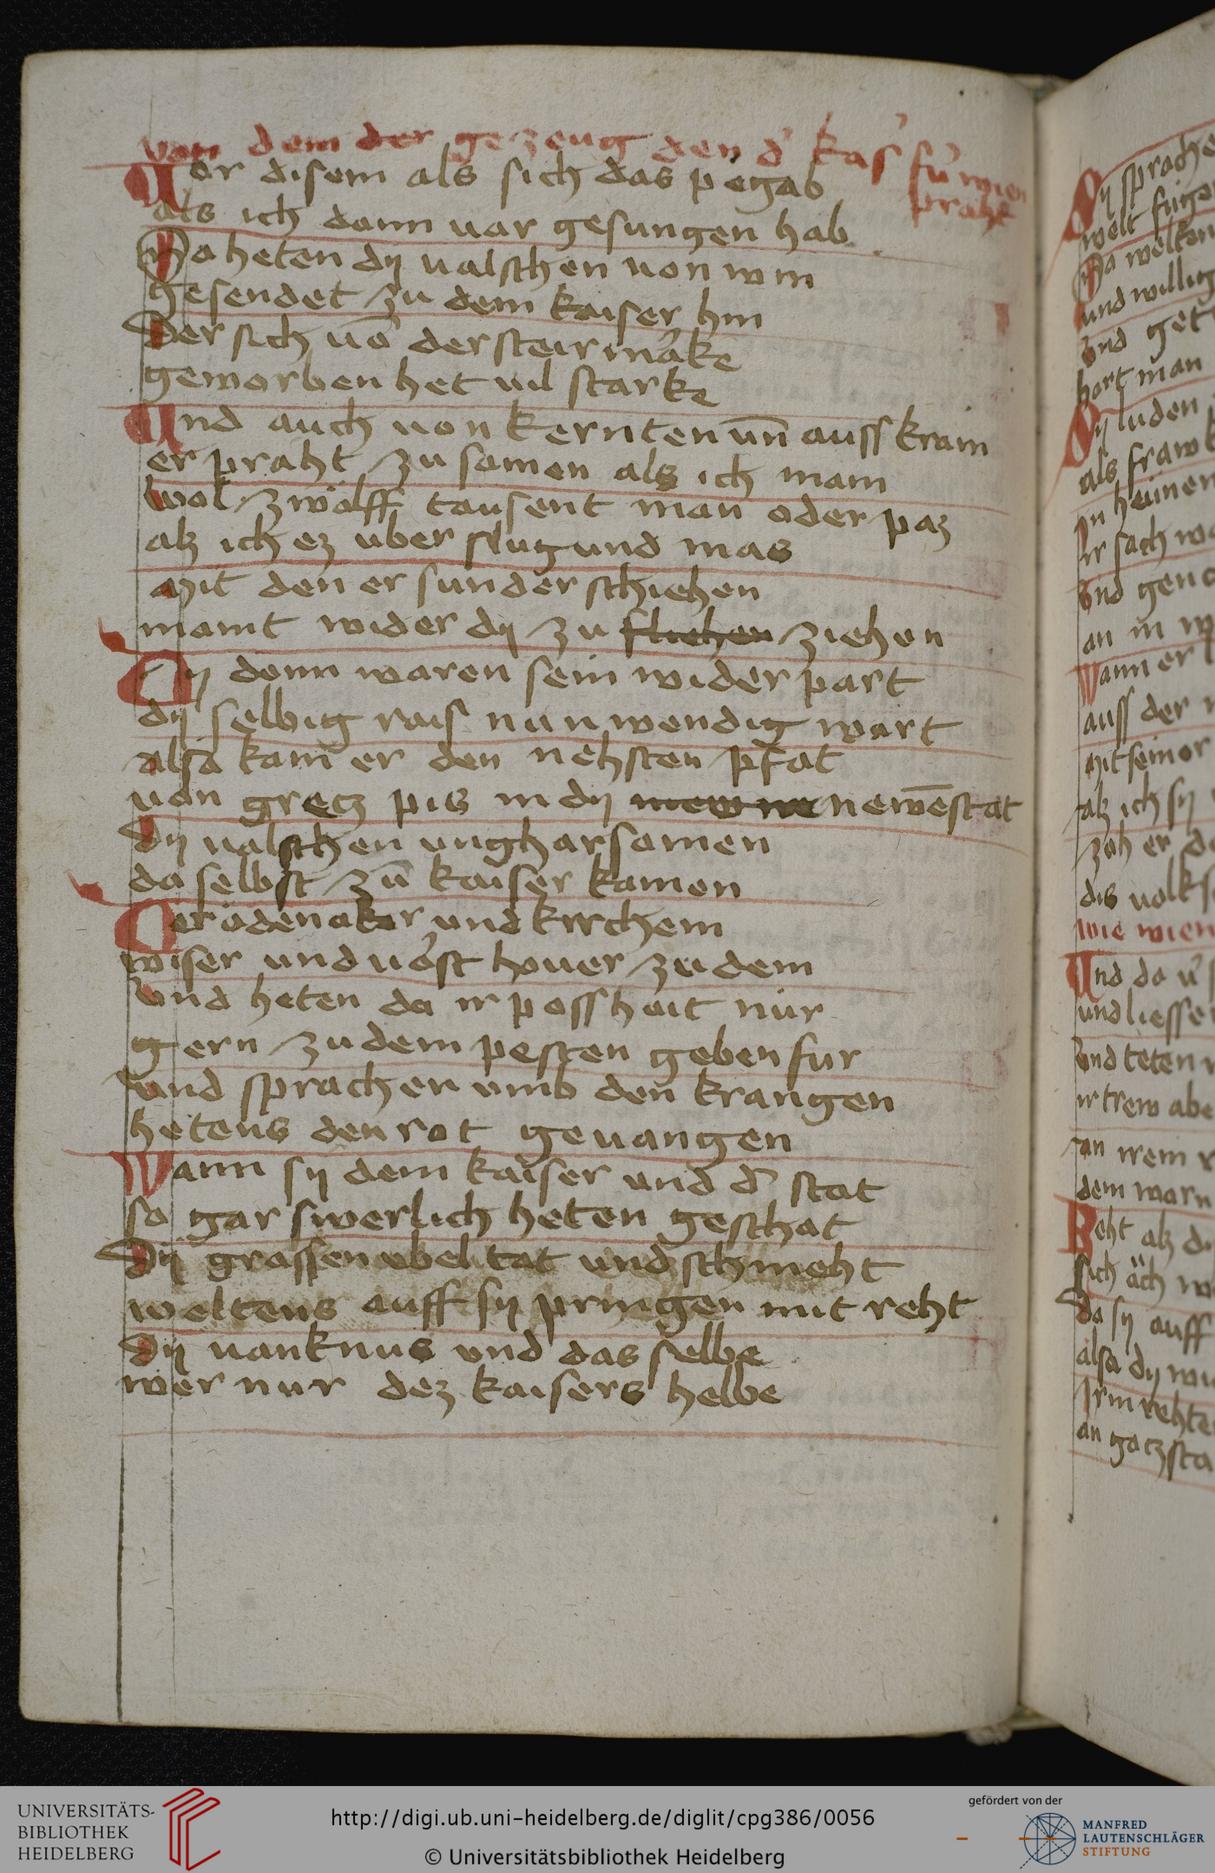 von dem der gezeug den d' kas' fu'r wien
praht
Uor disem als sich das pegab
als ich dann uar gesungen hab
Da heten dy ualschen uon win
gesendet zu dem kaiser hin
Der sich uō der steirmarke
geworben het uil starke
Und auch uon kernten un̄ auss krain
er praht zu samen als ich main
wol zwölff tausent man oder paz
alz ich ez uber slug und mas
Mit den er sunder schiehen
maint wider dy zu fliehen ziehen
Dy denn waren sein wider part
dy selbig rais nun wendig wart
alsa kam er den nehsten pfat
uan gretz pis in dy newēstat
Dy ualschen ungharsamen
da selbst zū kaiser kamen
Der odenaker und kirchem
wiser und uorst houer zu dem
und heten da ir posshait nur
gern zu dem pesten geben fur
und sprachen umb den krangen
hetens den rot geuangen
Wann sy dem kaiser und d' stat
so gar swerlich heten geschat
Dy grassen ubeltat und schmeht
weltens auff sy pringen mit reht
Dy uanknus und das selbe
wer nur dez kaisers helbe
Dy sprache
welt
Da welken
und willig
und get
hort man
Dy luden
als fraw
In heimen
Ir sach
Und gen
an in
Wann er
auss der
Mit seiner
alz ich sy
zoh er
dis uolk
wie wien
Und do
und liesse
Und teten
ir trew abe
an irem
dem warn
Reht alz
sich äch
da sy auff
alsa dy
Irm rehte
an gatz
UNIVERSITÄTS-
BIBLIOTHEK
HEIDELBERG
http://digi.ub.uni-heidelberg.de/diglit/cpg386/0056
© Universitätsbibliothek Heidelberg
gefördert von der
MANFRED
LAUTENSCHLÄGER
STIFTUNG